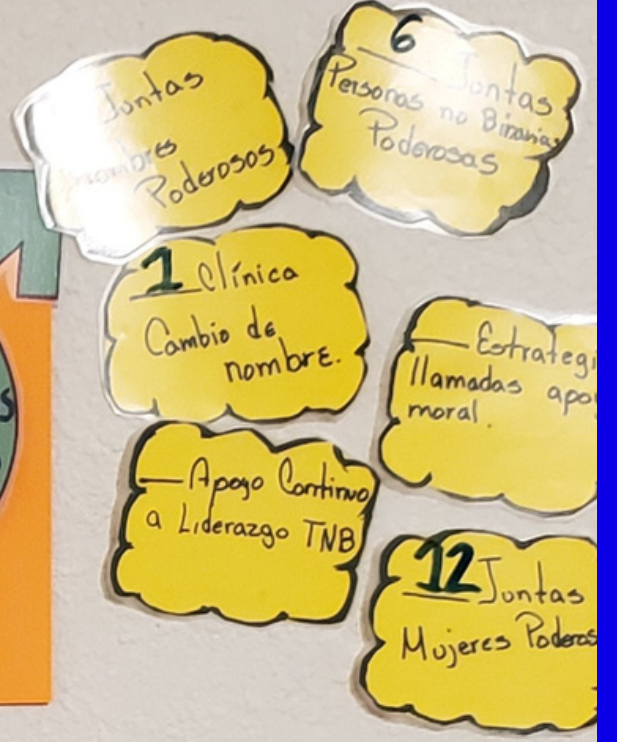 Juntas
Hombres
Poderosos
6 Juntas
Personas no Binarias
Poderosas
1 Clínica
Cambio de
nombre.
Estrategi
llamadas apo
moral.
Apoyo Continuo
a Liderazgo TNB
12 Juntas
Mujeres Poderos
s